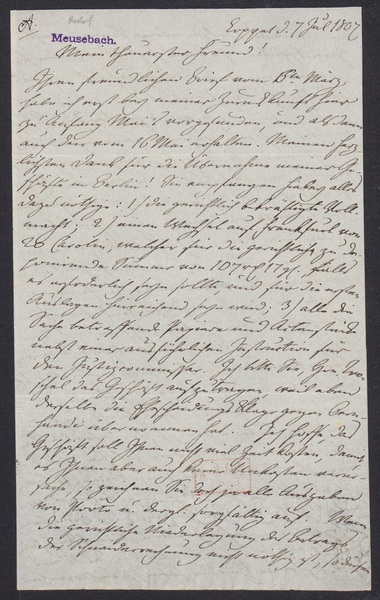 Meusebach.
Coppet d. 7 Jul 1807
Mein theuerster Freund!
Ihren freundlichen Brief vom 6ten März,
habe ich erst bey meiner Zurückkunft hier
zu Anfang Mai's vorgefunden, und alsdann
auch den vom 16 Mai erhalten. Meinen herz
lichsten Dank für die Übernahme meiner Ge
schäfte in Berlin! Sie empfangen hiebey alles
dazu nöthige: 1) die gerichtlich bestätigte Voll
macht; 2) einen Wechsel auf Frankfurt von
26 Carolin, welcher für die gerichtlich zu de
ponirende Summe von 107 rth 17 gr, falls
es erforderlich seyn sollte, und für die ersten
Auslagen hinreichend seyn wird; 3) alle die
Sache betreffende Papiere und Actenstücke
nebst einer ausführlichen Instruction für
den Justizcommissar. Ich bitte Sie, Hrn.
das Geschäft aufzutragen, weil eben
derselbe die Ehescheidungs Klage gegen Bern
hardi übernommen hat. Ich hoffe das
Geschäft soll Ihnen nicht viel Zeit kosten, damit
es Ihnen aber auch keine Unkosten verur
sache, so zeichnen Sie doch ja alle Ausgaben
von Porto u. dergl. sorgfältig auf. Wenn
die gerichtliche Niederlegung des Betrags
der Schneiderrechnung nicht nöthig ist, so